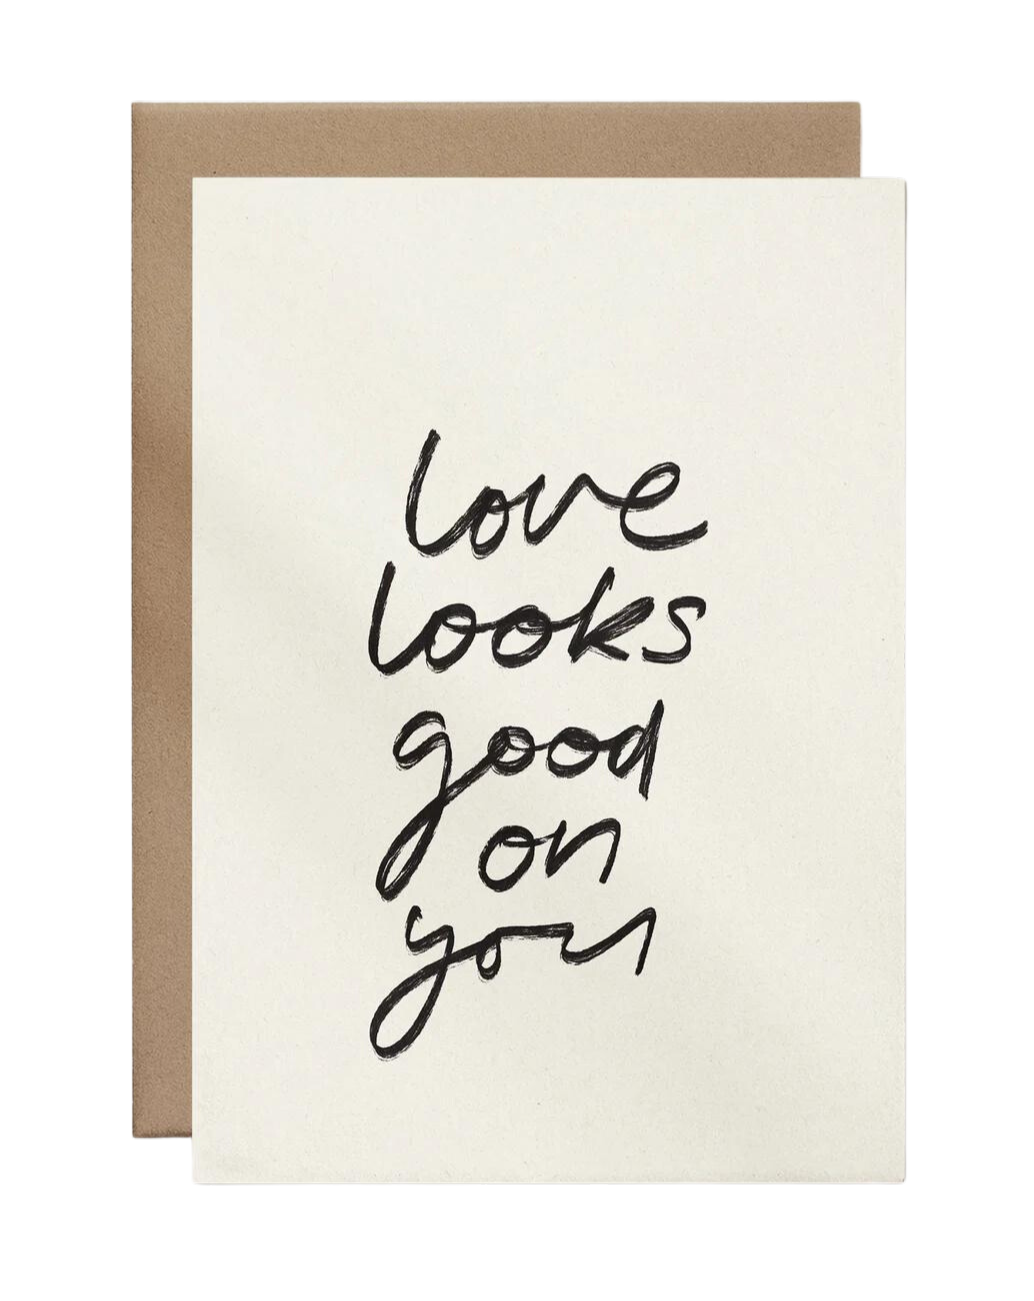 love
looks
good
on
you